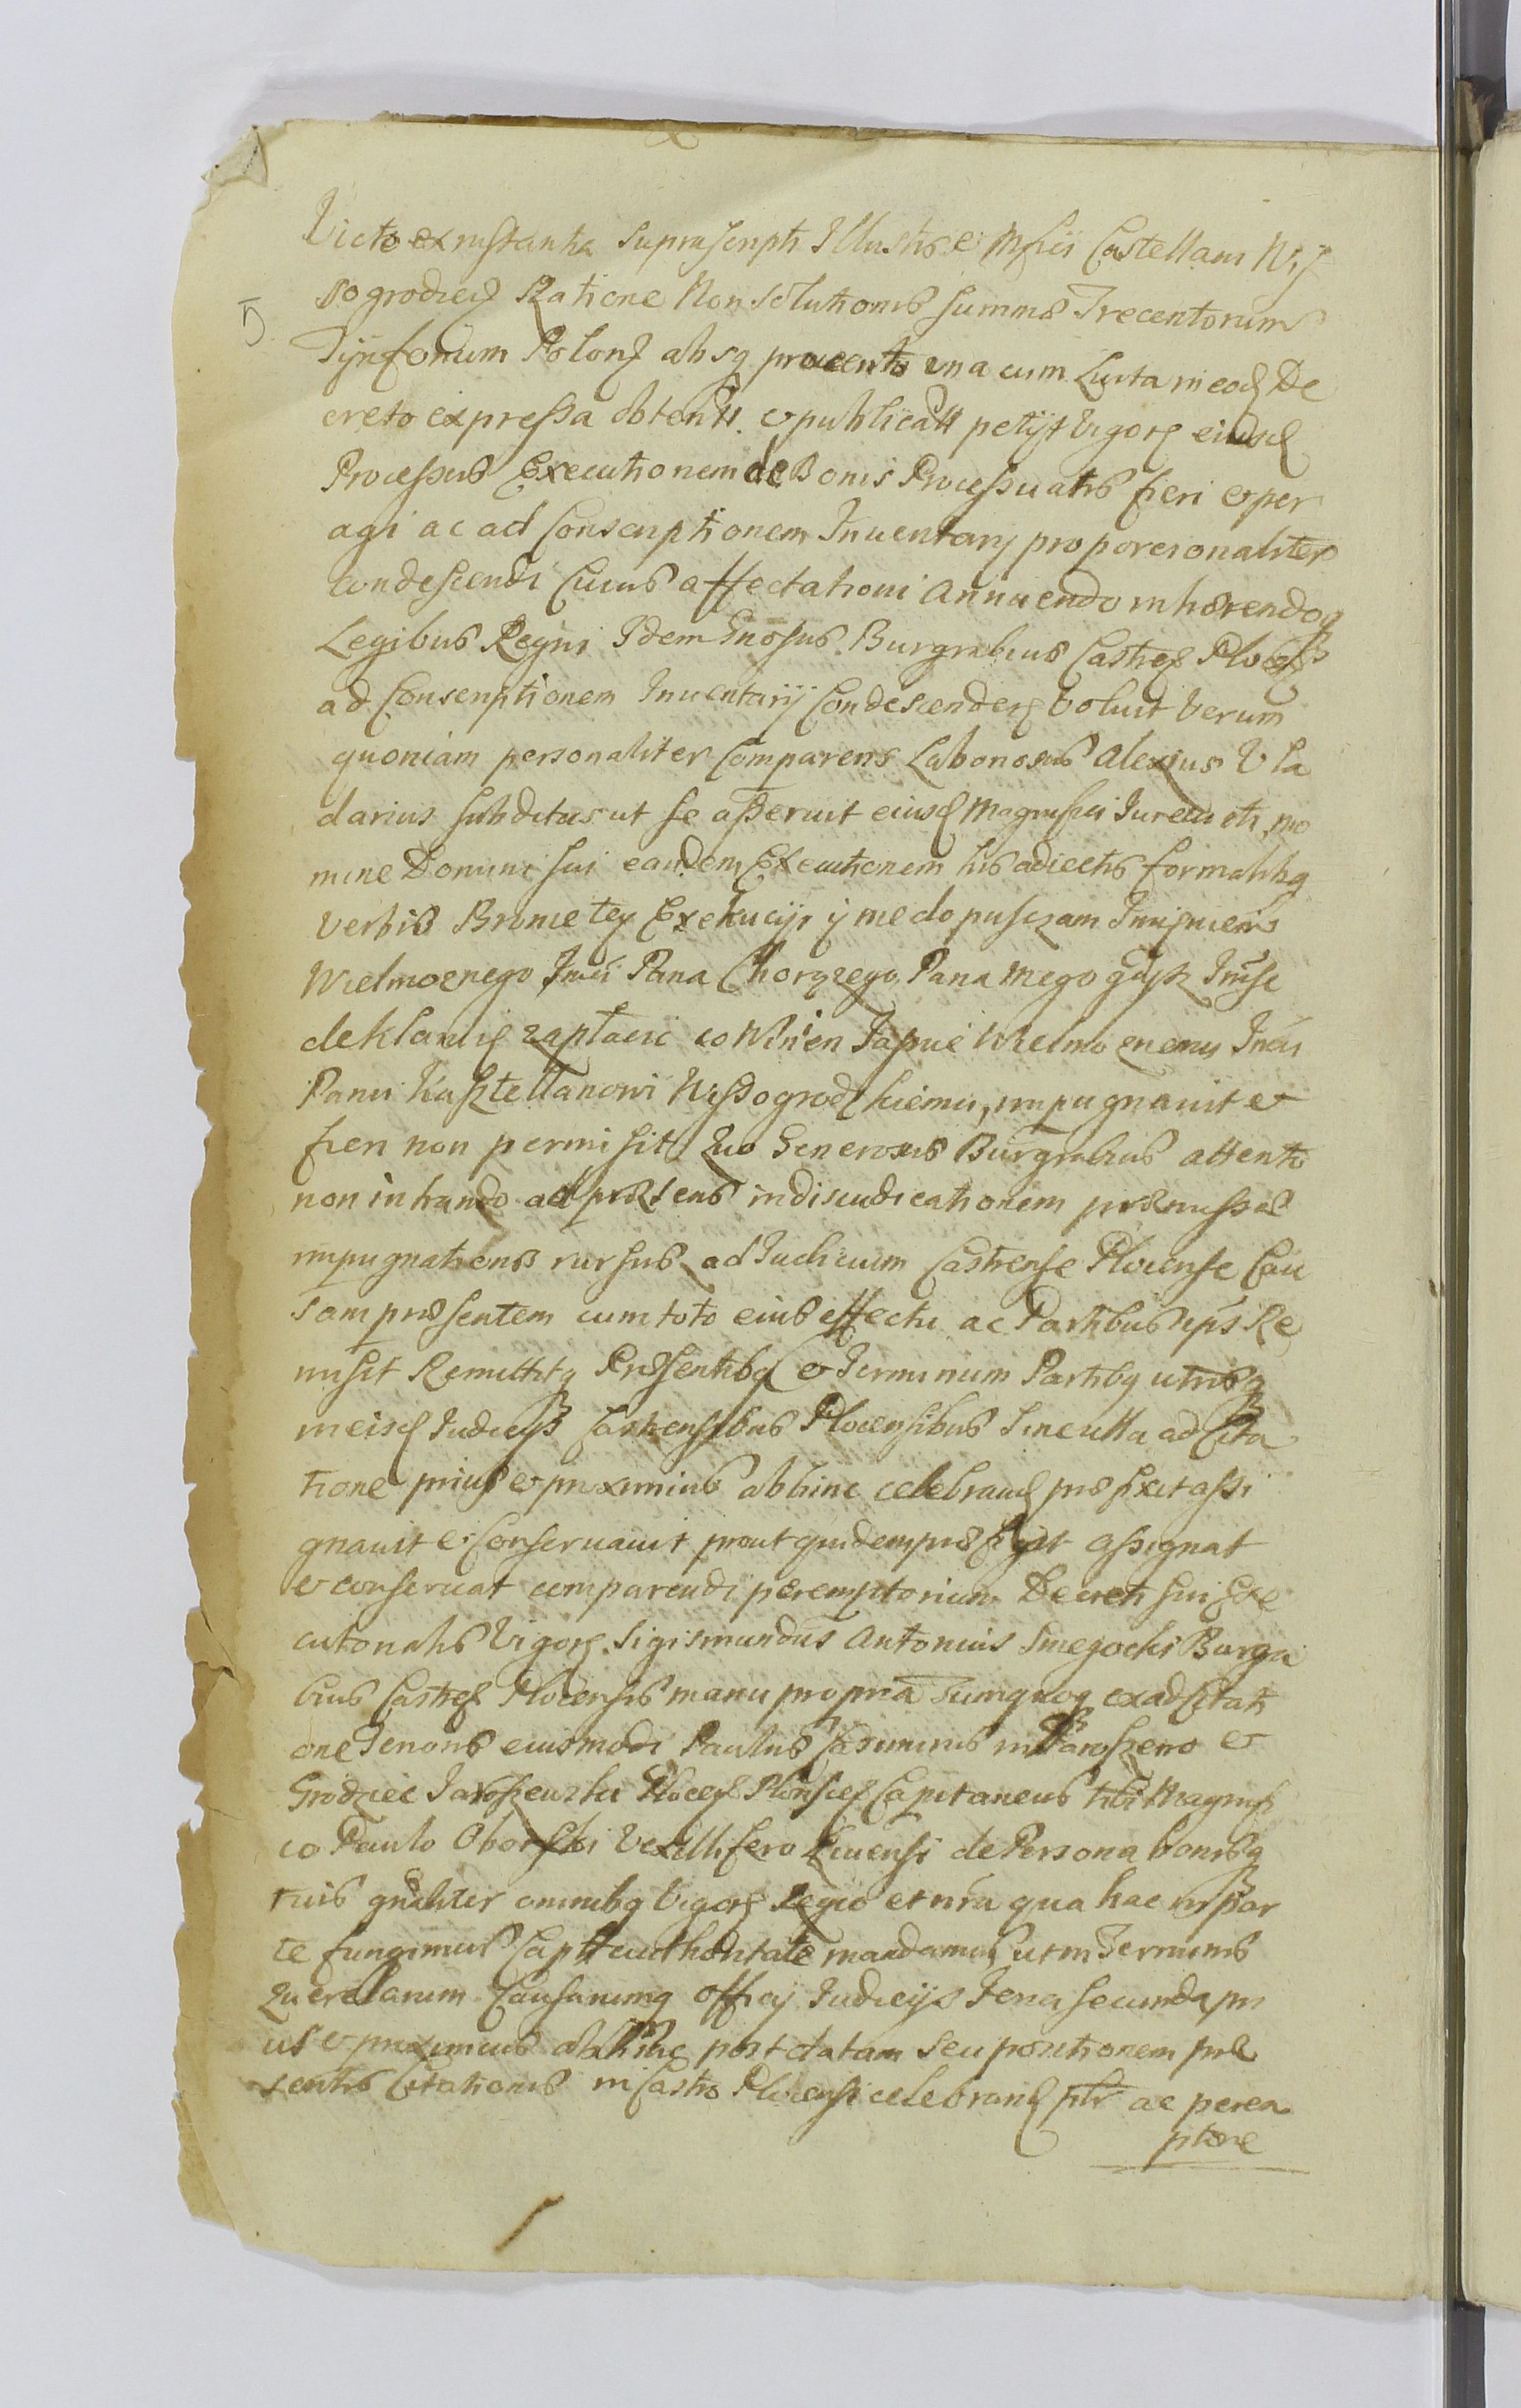 Victo ex instantia suprascripti Illustris et Mfici Castellani Wys
sogrodzen Ratione Non solutionis summæ Trecentorum
5
Tynfonum Polon absq procento una cum Lucta in eod De
creto expressa obtent. et publicati petijt Vigore eiusd
Processus Executionem de Bonis Processuatis fieri et per
agi ac ad Conscriptionem Inuentarij proporcionaliter
condescendi Cuius affectationi Annuendo inhærendoq
Legibus Regni Idem Gnosus Burgrabius Castren Plocens
ad Conscriptionem Inuentarij Condescendere voluit Verum
quoniam personaliter Comparens Laboriosus Alexius Vla
darius subditus ut se asseruit eiusd Magnifici Iurevicti no
mine Domini sui eandem Executionem his adiectis formalibq
verbis Bronie tey Exekucyi y niedopuszczam Imieniem
Wielmoznego Jmci Pana Chorązego Pana mego gdysz Jmsc
deklaruie zaptacic co Winien Jasnie Wielmoznemu Jmci
Panu Kasztellanowi Wyssogrodzkiemu, impugnauit et
fieri non permisit Quo Generosus Burgrabius attento
non intrando ad præsens in disiudicationem præmissæ
impugnationis rursus ad Iudicium Castrense Plocense Cau
sam præsentem cum toto eius effectu ac Partibus ipsis Re
misit Remittitq Præsentibq et Terminum Partibq utrisq
in eisd Iudicijs Castrensibus Plocensibus sine ulla adcita
tione prius et proximius abhinc celebrand præfixit assi
gnauit et Conseruauit prout quidem præfigit assignat
et conseruat comparendi peremptorium Decreti sui Exe
cutorialis Vigore Sigismundus Antonius Smegocki Burgra
bius Castren Plocensis manu propria Tumquoq ex adcitati
one Tenoris eiusmodi Paulus Casimirus in Jaroszewo et
Grodziec Jaroszewski Plocen Plonscen Capitaneus tibi Magnifi
co Paulo Oborski Vexillifero Liuensi de Persona bonisq
tuis gnaliter omnibq Vigore Regio et nra qua hac in par
te fungimur Captti authoritate mandamus ut in Terminis
Querelarum Causarumq Officij Iudicijs Feria secunda pri
us et proximius abhinc post datam seu positionem præ
sentis Citationis in Castro Plocensi celebrand pltr ac perem
ptorie